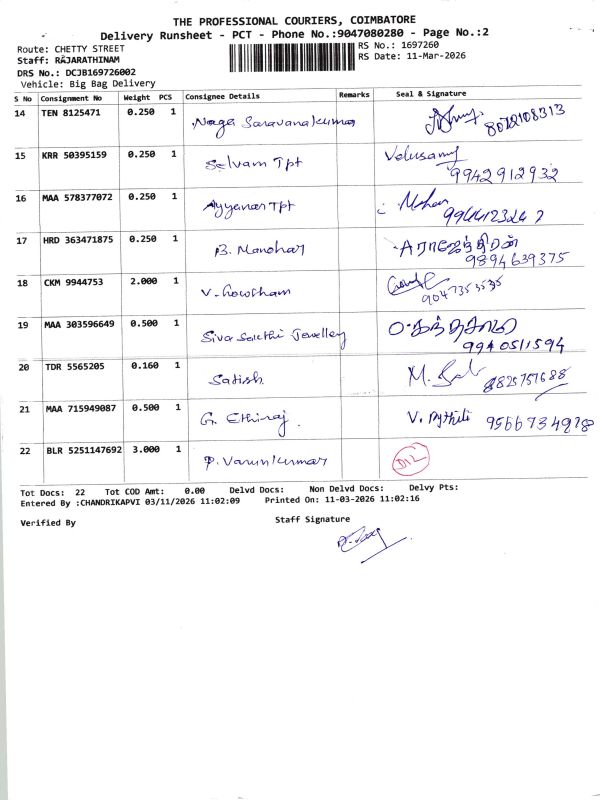 THE PROFESSIONAL COURIERS, COIMBATORE
Delivery Runsheet - PCT - Phone No.:9047080280 - Page No.:2
Route: CHETTY STREET
RS No.: 1697260
Staff: RAJARATHINAM
RS Date: 11-Mar-2026
DRS No.: DCJB169726002
Vehicle: Big Bag Delivery
S No Consignment No Weight PCS Consignee Details Remarks Seal & Signature
14 TEN 8125471 0.250 1 Naga Saravanakumar
15 KRR 50395159 0.250 1 Selvam Tpt Velusamy 9942912932
16 MAA 578377072 0.250 1 Ayyanar Tpt Mohan
17 HRD 363471875 0.250 1 B. Manohar A ராஜேந்திரன் 9894639375
18 CKM 9944753 2.000 1 V. Gowtham
19 MAA 303596649 0.500 1 Siva Sakthi Jewellery 0. கந்தசாமி 9940511594
20 TDR 5565205 0.160 1 Satish 8825757688
21 MAA 715949087 0.500 1 G. Ethiraj. V. Pythili 9566734978
22 BLR 5251147692 3.000 1 P. Varunkumar D12
Tot Docs: 22 Tot COD Amt: 0.00 Delvd Docs: Non Delvd Docs: Delvy Pts:
Entered By :CHANDRIKAPVI 03/11/2026 11:02:09 Printed On: 11-03-2026 11:02:16
Verified By Staff Signature